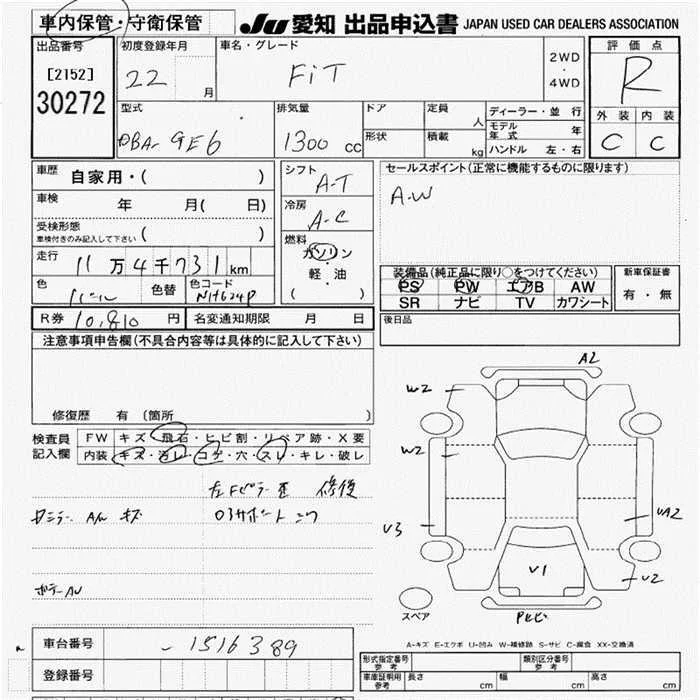 車内保管・守衛保管 JU 愛知 出品申込書 JAPAN USED CAR DEALERS ASSOCIATION
出品番号 初度登録年月 車名・グレード 2WD・4WD 評価点
[2152] 22 月 FiT R
30272
型式 排気量 ドア 定員 人 ディーラー・並行 外装 内装
DBA- GE6 1300 cc 形状 積載 kg モデル年式 年 C C
ハンドル 左・右
車歴 自家用・( ) シフト A-T セールスポイント(正常に機能するものに限ります)
車検 年 月( 日) 冷房 A-C A-W
受検形態 ( )
車検付きのみ記入して下さい
燃料
走行 11万4千731km ガソリン・軽油 ( )
装備品(純正品に限り○をつけてください) 新車保証書
色 色替 色コード NH624P PS PW エアB AW 有・無
パール SR ナビ TV カワシート
R券 10,810円 名変通知期限 月 日 後日品
注意事項申告欄(不具合内容等は具体的に記入して下さい)
修復歴 有(箇所 )
検査員記入欄 FW キズ・飛石・ヒビ割・リペア跡・X要
内装 キズ・汚レ・コゲ・穴・スレ・キレ・破レ
左Fピラー 修復
AW キズ
A2
W2
W2
V3
UA2
V1
U2
スペア
A-キズ E-エクボ U-凹み W-補修跡 S-サビ C-腐食 XX-交換済
車台番号 -1516389
登録番号
形式指定番号 参考 類別区分番号 参考
車庫証明用 参考 長さ cm 幅 cm 高さ cm